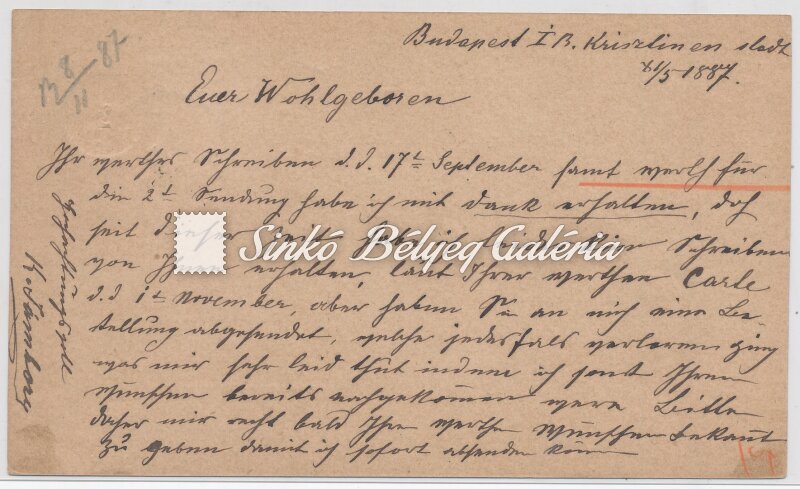 Budapest I B. Krisztinen stadt
11/5 1887.
B 8/11 87
Euer Wohlgeboren
Ihr werthes Schreiben d. d. 17t September samt werth für
die 2t Sendung habe ich mit dank erhalten, doch
seit dieser Schreiben
von Ihnen erhalten, laut Ihrer werthen Carte
d. d 1t November, aber haben Sie an mich eine Be-
stellung abgesendet, welche jedesfals verloren ging
was mir sehr leid thut indem ich sonst Ihrem
Wunschen bereits nachgekommen were Bitte
daher mir recht bald Ihre werthe Wunschen bekannt
zu geben damit ich sofort absenden kann
Hochachtungsvoll
Sinkó Bélyeg Galéria